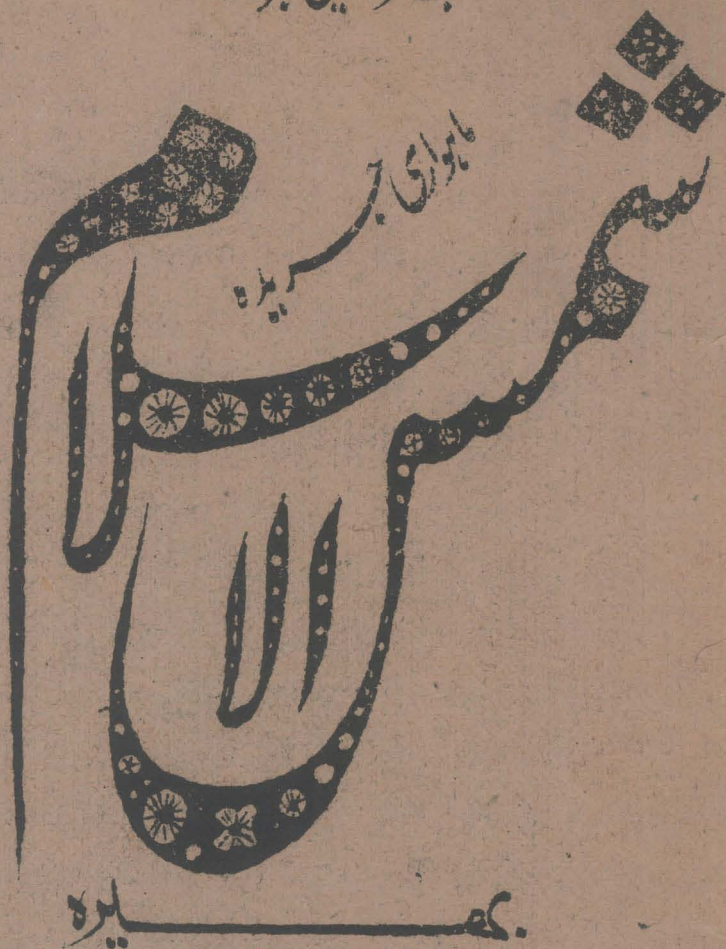 ماہواری جریدہ
شمس الاسلام
بھیرہ